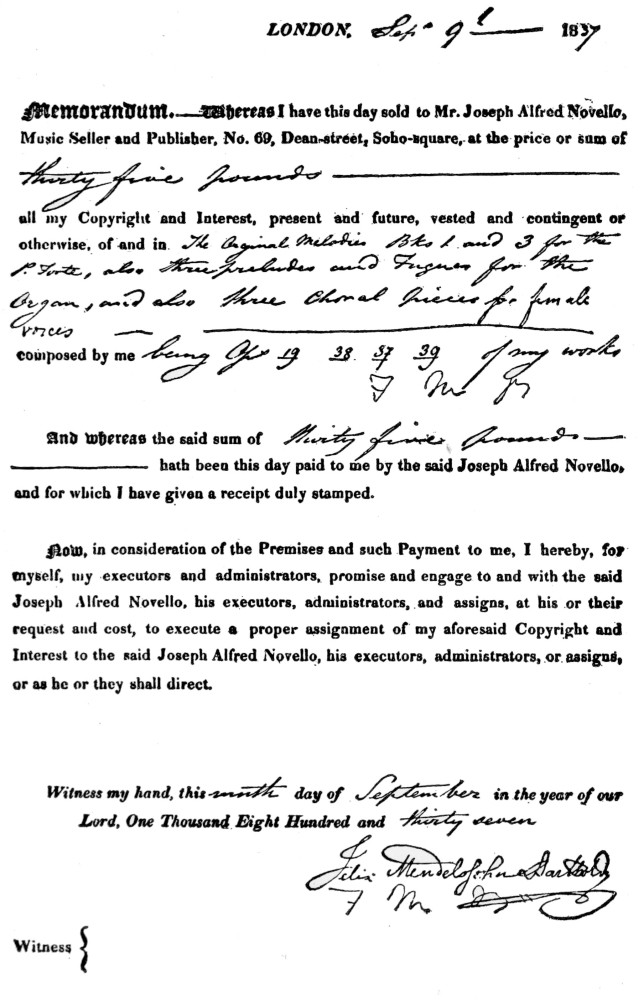 LONDON, Sepr 9th 1837
Memorandum.—Whereas I have this day sold to Mr. Joseph Alfred Novello,
Music Seller and Publisher, No. 69, Dean-street, Soho-square, at the price or sum of
thirty five pounds
all my Copyright and Interest, present and future, vested and contingent or
otherwise, of and in The Original Melodies Bks 1 and 3 for the
P. Forte, also three preludes and Fugues for the
Organ, and also three Choral pieces for female
voices
composed by me being Ops 19 38 37 39 of my works
F M
And whereas the said sum of thirty five pounds—
hath been this day paid to me by the said Joseph Alfred Novello,
and for which I have given a receipt duly stamped.
Now, in consideration of the Premises and such Payment to me, I hereby, for
myself, my executors and administrators, promise and engage to and with the said
Joseph Alfred Novello, his executors, administrators, and assigns, at his or their
request and cost, to execute a proper assignment of my aforesaid Copyright and
Interest to the said Joseph Alfred Novello, his executors, administrators, or assigns,
or as he or they shall direct.
Witness my hand, this ninth day of September in the year of our
Lord, One Thousand Eight Hundred and thirty seven
Felix Mendelssohn Bartholdy
F M
Witness {